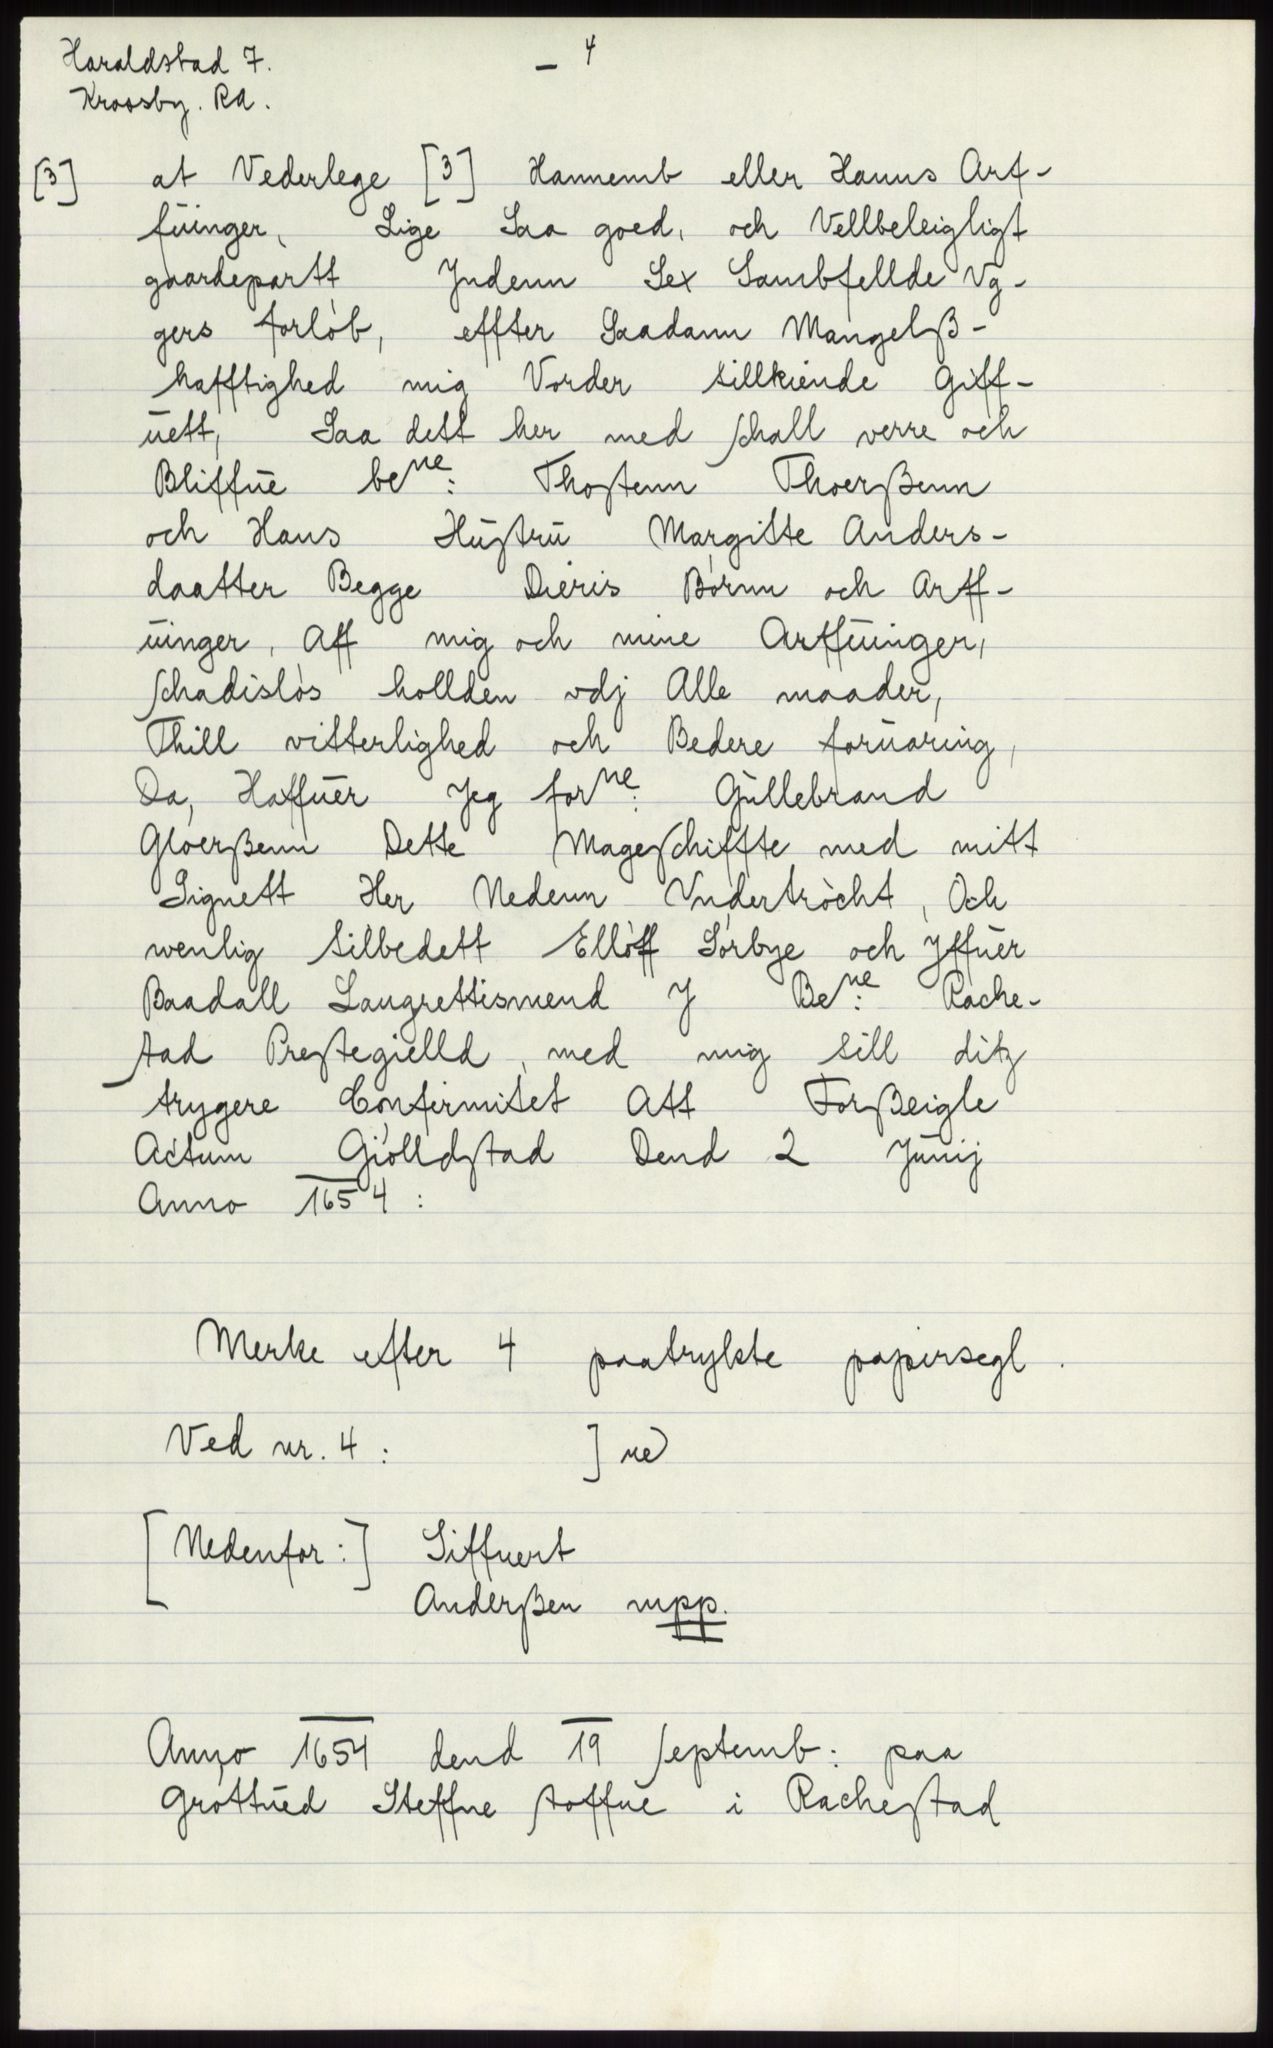 Haraldstad 7. – 4
Kroosby. RA.
[3] at Vederlege [3] Hannemb eller Hanns Arf-
füinger, Lige Saa goed, och Vellbeleigligt
gaardepartt Jndenn Sex Sambfellde Vg-
gers forløb, effter Saadann Mangelß-
hafftighed mig Vorder tillkiende Giff-
üett, Saa dett her med schall verre och
Bliffüe bene: Thostenn Thoerßenn
och Hans Hüstrü Margitte Anders-
daatter Begge Dieris Børnn och Arff-
üinger, Aff mig och mine Arffüinger,
schadisløs hollden vdj Alle maader,
Thill vitterlighed och Bedere foruaring,
Da, Haffüer Jeg forne: Güllebrand
Gloerßenn Dette Mageschiffte med mitt
Signett Her Nedenn Vndertröcht, Och
wenlig tilbedett Elløff Sørbye och Jffüer
Baadall Laugrettismend J Bene: Rache-
stad Prestegielld, med mig till ditz
trygere Confirmitet Att Forßeigle
Actum Giølldstad Dend 2 Junij
Anno 1654:
Merke efter 4 paatrykte papirsegl.
Ved nr. 4: ] ne
[Nedenfor:] Siffuert
Anderßen mpp.
Anno 1654 dend 19 septemb: paa
Grøttüed Steffne stoffüe i Rachestad